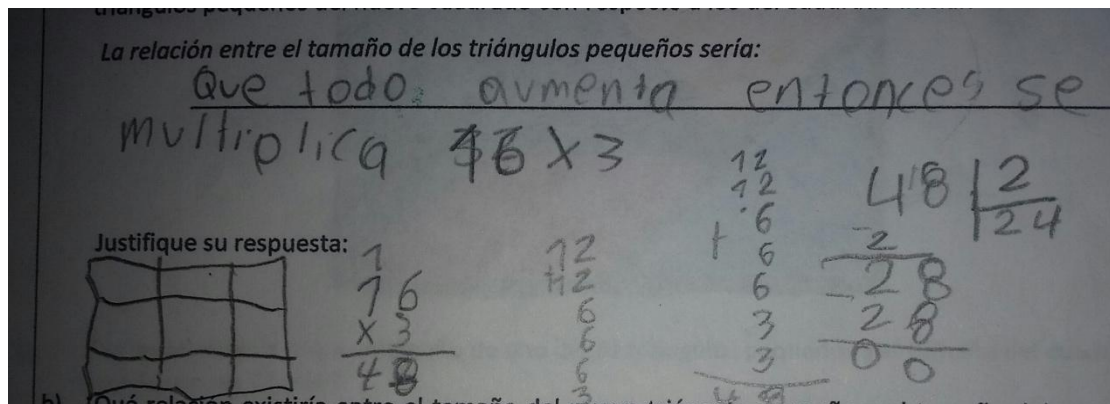 La relación entre el tamaño de los triángulos pequeños sería:
Que todo aumenta entonces se
multiplica 16 x 3
Justifique su respuesta:
1
16
x 3
48
12
+12
6
6
6
3
12
12
6
+ 6
6
3
3
48
48 | 2
24
-2
28
- 28
0 0